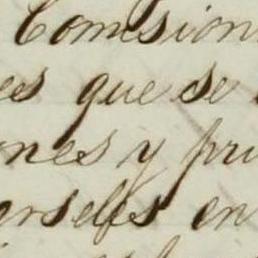 Comision
es que se
ones y pri
erseles en